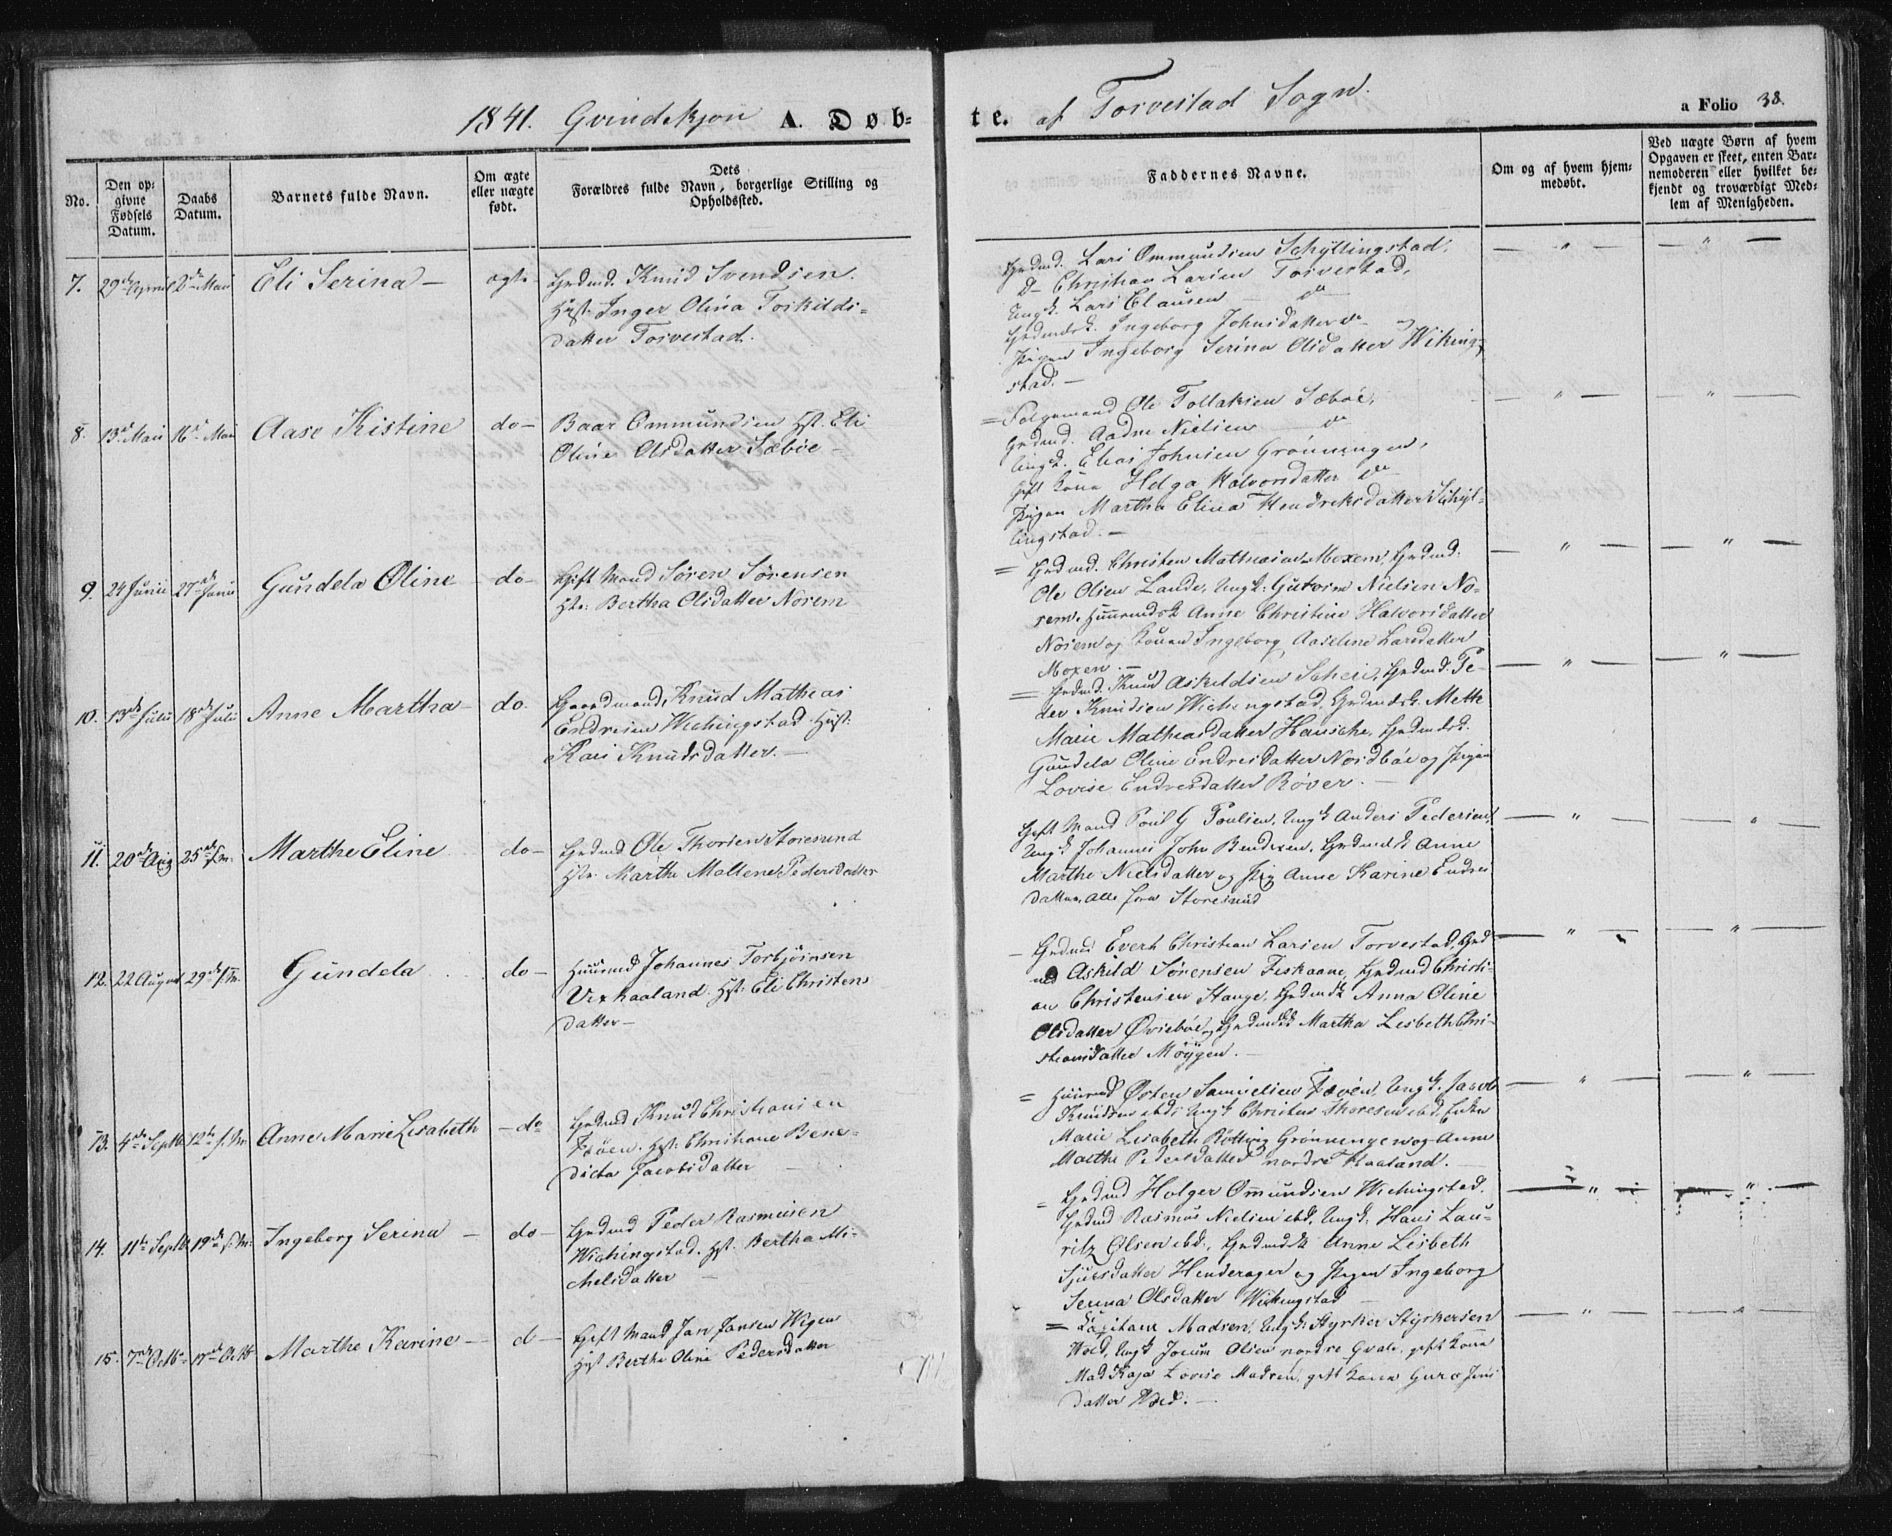 1841. Qvindekjøn A. Døb-
te. af Torvestad Sogn. a Folio 38.
No.
Den op-
givne
Fødsels
Datum.
Daabs
Datum.
Barnets fulde Navn.
Om ægte
eller uægte
født.
Dets
Forældres fulde Navn, borgerlige Stilling og
Opholdssted.
Faddernes Navne.
Om og af hvem hjem-
medøbt.
Ved uægte Børn af hvem
Opgaven er skeet, enten Bar-
nemoderen eller hvilket be-
kjendt og troværdigt Med-
lem af Menigheden.
7. 29de April 2den Maii Eli Serina — ægte
Grdmd. Knud Svendsen.
Hst. Inger Olina Torkilds-
datter Torvestad.
Grdmd. Lars Ommundsen Schyllingstad,
D— Christian Larsen Torvestad,
Ungk. Lars Clausen — do
Grdmdsk. Ingeborg Johnsdatter do
Pigen Ingeborg Serina Olsdatter Wiking-
stad. —
8. 13de Maii 16de Maii Aase Kistine do —
Baar Ommundsen Hst. Eli
Oline Olsdatter Sæbøe —
= Følgemand Ole Tollaksen Sæbøe,
Grdmd. Aadne Nielsen do
Ungk. Elias Johnsen Grønningen,
Gift Kone Helga Halvorsdatter do
Pigen Martha Elina Hendriksdatter Schyl-
lingstad. —
9. 24 Junii 27de Junii Gundela Oline do —
Gift Mand Søren Sørensen
Hst: Bertha Olsdatter Norem
= Grdmd. Christen Mathiasen Moxen, Grdmd.
Ole Olsen Lande, Ungk: Gutorm Nielsen No-
rem, Huusmdsk Anne Christine Halvorsdatter
Norem og Konen Ingeborg Aaseline Larsdatter
Moxen. —
10. 13de Julii 18de Julii Anne Martha — do.
Gaardmand, Knud Mathias
Endresen Wichingstad. Hst:
Kari Knudsdatter. —
= Grdmd. Knud Askildsen Scheie, Grdmd. Pe-
der Knudsen Wichingstad, Grdmdsk. Mette
Marie Mathiasdatter Hauske, Grdmdsk.
Gundela Oline Endresdatter Nordbøe og Pigen
Lovise Endresdatter Røver. —
11. 20de Aug 25de s.m. Marthe Eline do —
Grdmd Ole Thorsen Storesund
Hst: Martha Mallene Pedersdatter
Gift Mand Poul G Poulsen, Ungk Anders Pedersen,
Ungk Johannes John Bendixen, Grdmdsk Anne
Marthe Nielsdatter og Pig Anne Karine Endres
datter, alle fra Storesund
12. 22 August 29de s.m. Gundela do —
Huusmd Johannes Torbjørnsen
Vexhaaland. Hst: Eli Christens
datter —
— Grdmd Evert Christian Larsen Torvestad, Grd-
md Askild Sørensen Feskaane, Grdmd Christi-
an Christensen Hauge, Grdmdsk Anna Oline
Olsdatter Øvrebøe, og Grdmdsk Martha Lisbeth Chri-
stiansdatter Møygen. —
13. 4de Septb. 12te s.M. Anne Marie Lisabeth — do
Grdmd Knud Christiansen
Fæøen. Hst: Christiane Bene-
dicta Jacobsdatter —
= Huusmd Østen Samuelsen Fæøen, Ungk. Jacob
Knudsen ebd, Ungk Christen Thoresen ebd, Enke
Marie Lisabeth Røttvig Grønningen og Anne
Marthe Pedersdatter nordre Haaland. —
14. 11te Septb. 19de s.M. Ingeborg Serina — do —
Grdmd Peder Rasmusen
Wichingstad. Hst. Bertha Mi-
chelsdatter —
= Grdmd Holger Ommundsen Wichingstad,
Grdmd Rasmus Nielsen ebd, Ungk. Hans Lau-
ritz Olsen ebd., Grdmdsk Anne Lisbeth
Sjursdatter Henderager og Pigen Ingeborg
Serina Olsdatter Wichingstad —
15. 7de Octb. 17de Octb. Marthe Karine — d —
Gift Mand Jan Jansen Wigen
Hst Berthe Oline Pedersdatter
= Capitain Madsen, Ungk. Styrker Styrkersen
Wold, Ungk Jocum Olsen nordre Qvale, gift Kone
Mad Kaja Lovise Madsen, gift Kone Guro Jens
datter Wold. —